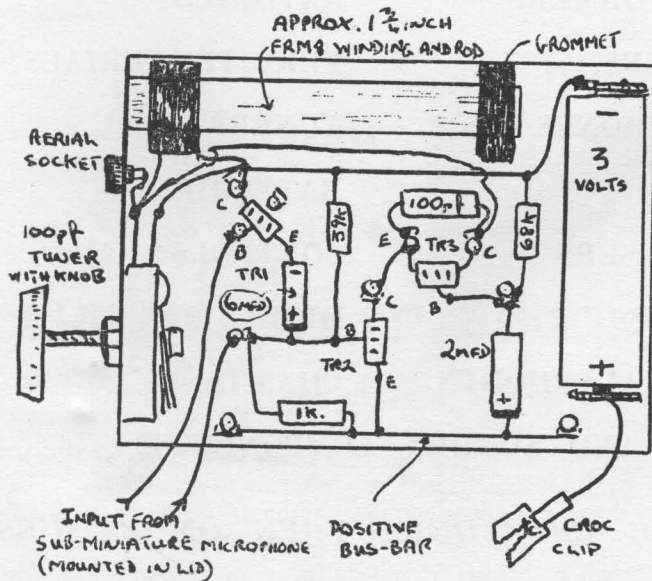 APPROX. 1 3/4 INCH
FRM8 WINDING AND ROD
GROMMET
AERIAL
SOCKET
3
VOLTS
100pf
TUNER
WITH KNOB
C
B
E
TR1
6MFD
+
39K
100p
E
TR3
C
B
68K
C
B
TR2
E
2MFD
+
1K.
+
INPUT FROM
SUB-MINIATURE MICROPHONE
(MOUNTED IN LID)
POSITIVE
BUS-BAR
CROC
CLIP